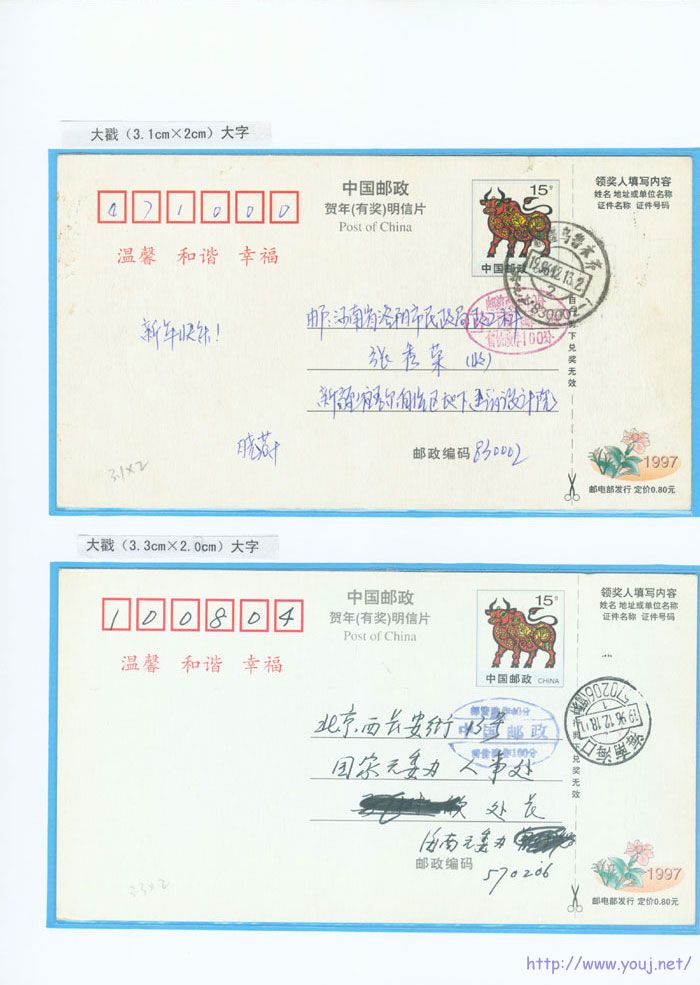 大戳（3.1cm×2cm）大字
471000
温馨 和谐 幸福
中国邮政
贺年(有奖)明信片
Post of China
15分
中国邮政
领奖人填写内容
姓名 地址或单位名称
证件名称 证件号码
乌鲁木齐
1996.12.13.21
2
830002
新年快乐!
邮:河南省洛阳市民政局政工科
张秀荣(收)
新疆维吾尔自治区地下
邮政编码 830002
自 剪下兑奖无效
1997
邮电部发行 定价0.80元
31×2
大戳（3.3cm×2.0cm）大字
100804
温馨 和谐 幸福
中国邮政
贺年(有奖)明信片
Post of China
15分
中国邮政 CHINA
领奖人填写内容
姓名 地址或单位名称
证件名称 证件号码
中国邮政
570206
1
1996.12.18.17
海南海口
北京西长安街13号
国家无委办 人事处
处长
海南无委办
邮政编码 570206
剪下兑奖无效
1997
邮电部发行 定价0.80元
33×2
http://www.youj.net/